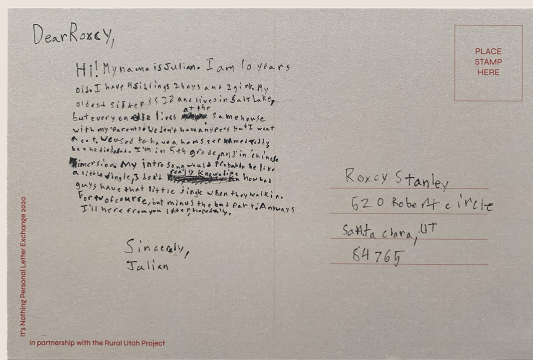 Dear Roxcy,
Hi! My name is Julian. I am 10 years
old. I have 4 siblings 2 boys and 2 girls. My
oldest sister is 22 and lives in Salt Lake,
but every one else lives at the same house
with my parents. We don't have any pets but I want
a cat. We used to have a hamster named
but he died. I'm in 5th grade, and in chinese
imersion. My intro song would probably be like
a little jingle, I don't really know how
guys have that little jingle when they walk in.
For of course, but minus the bad part. Anways
I'll here from you later hopefully.
Sincerely,
Julian
PLACE
STAMP
HERE
Roxcy Stanley
620 Robert circle
Santa clara, UT
84765
It's Nothing Personal Letter Exchange 2020
In partnership with the Rural Utah Project